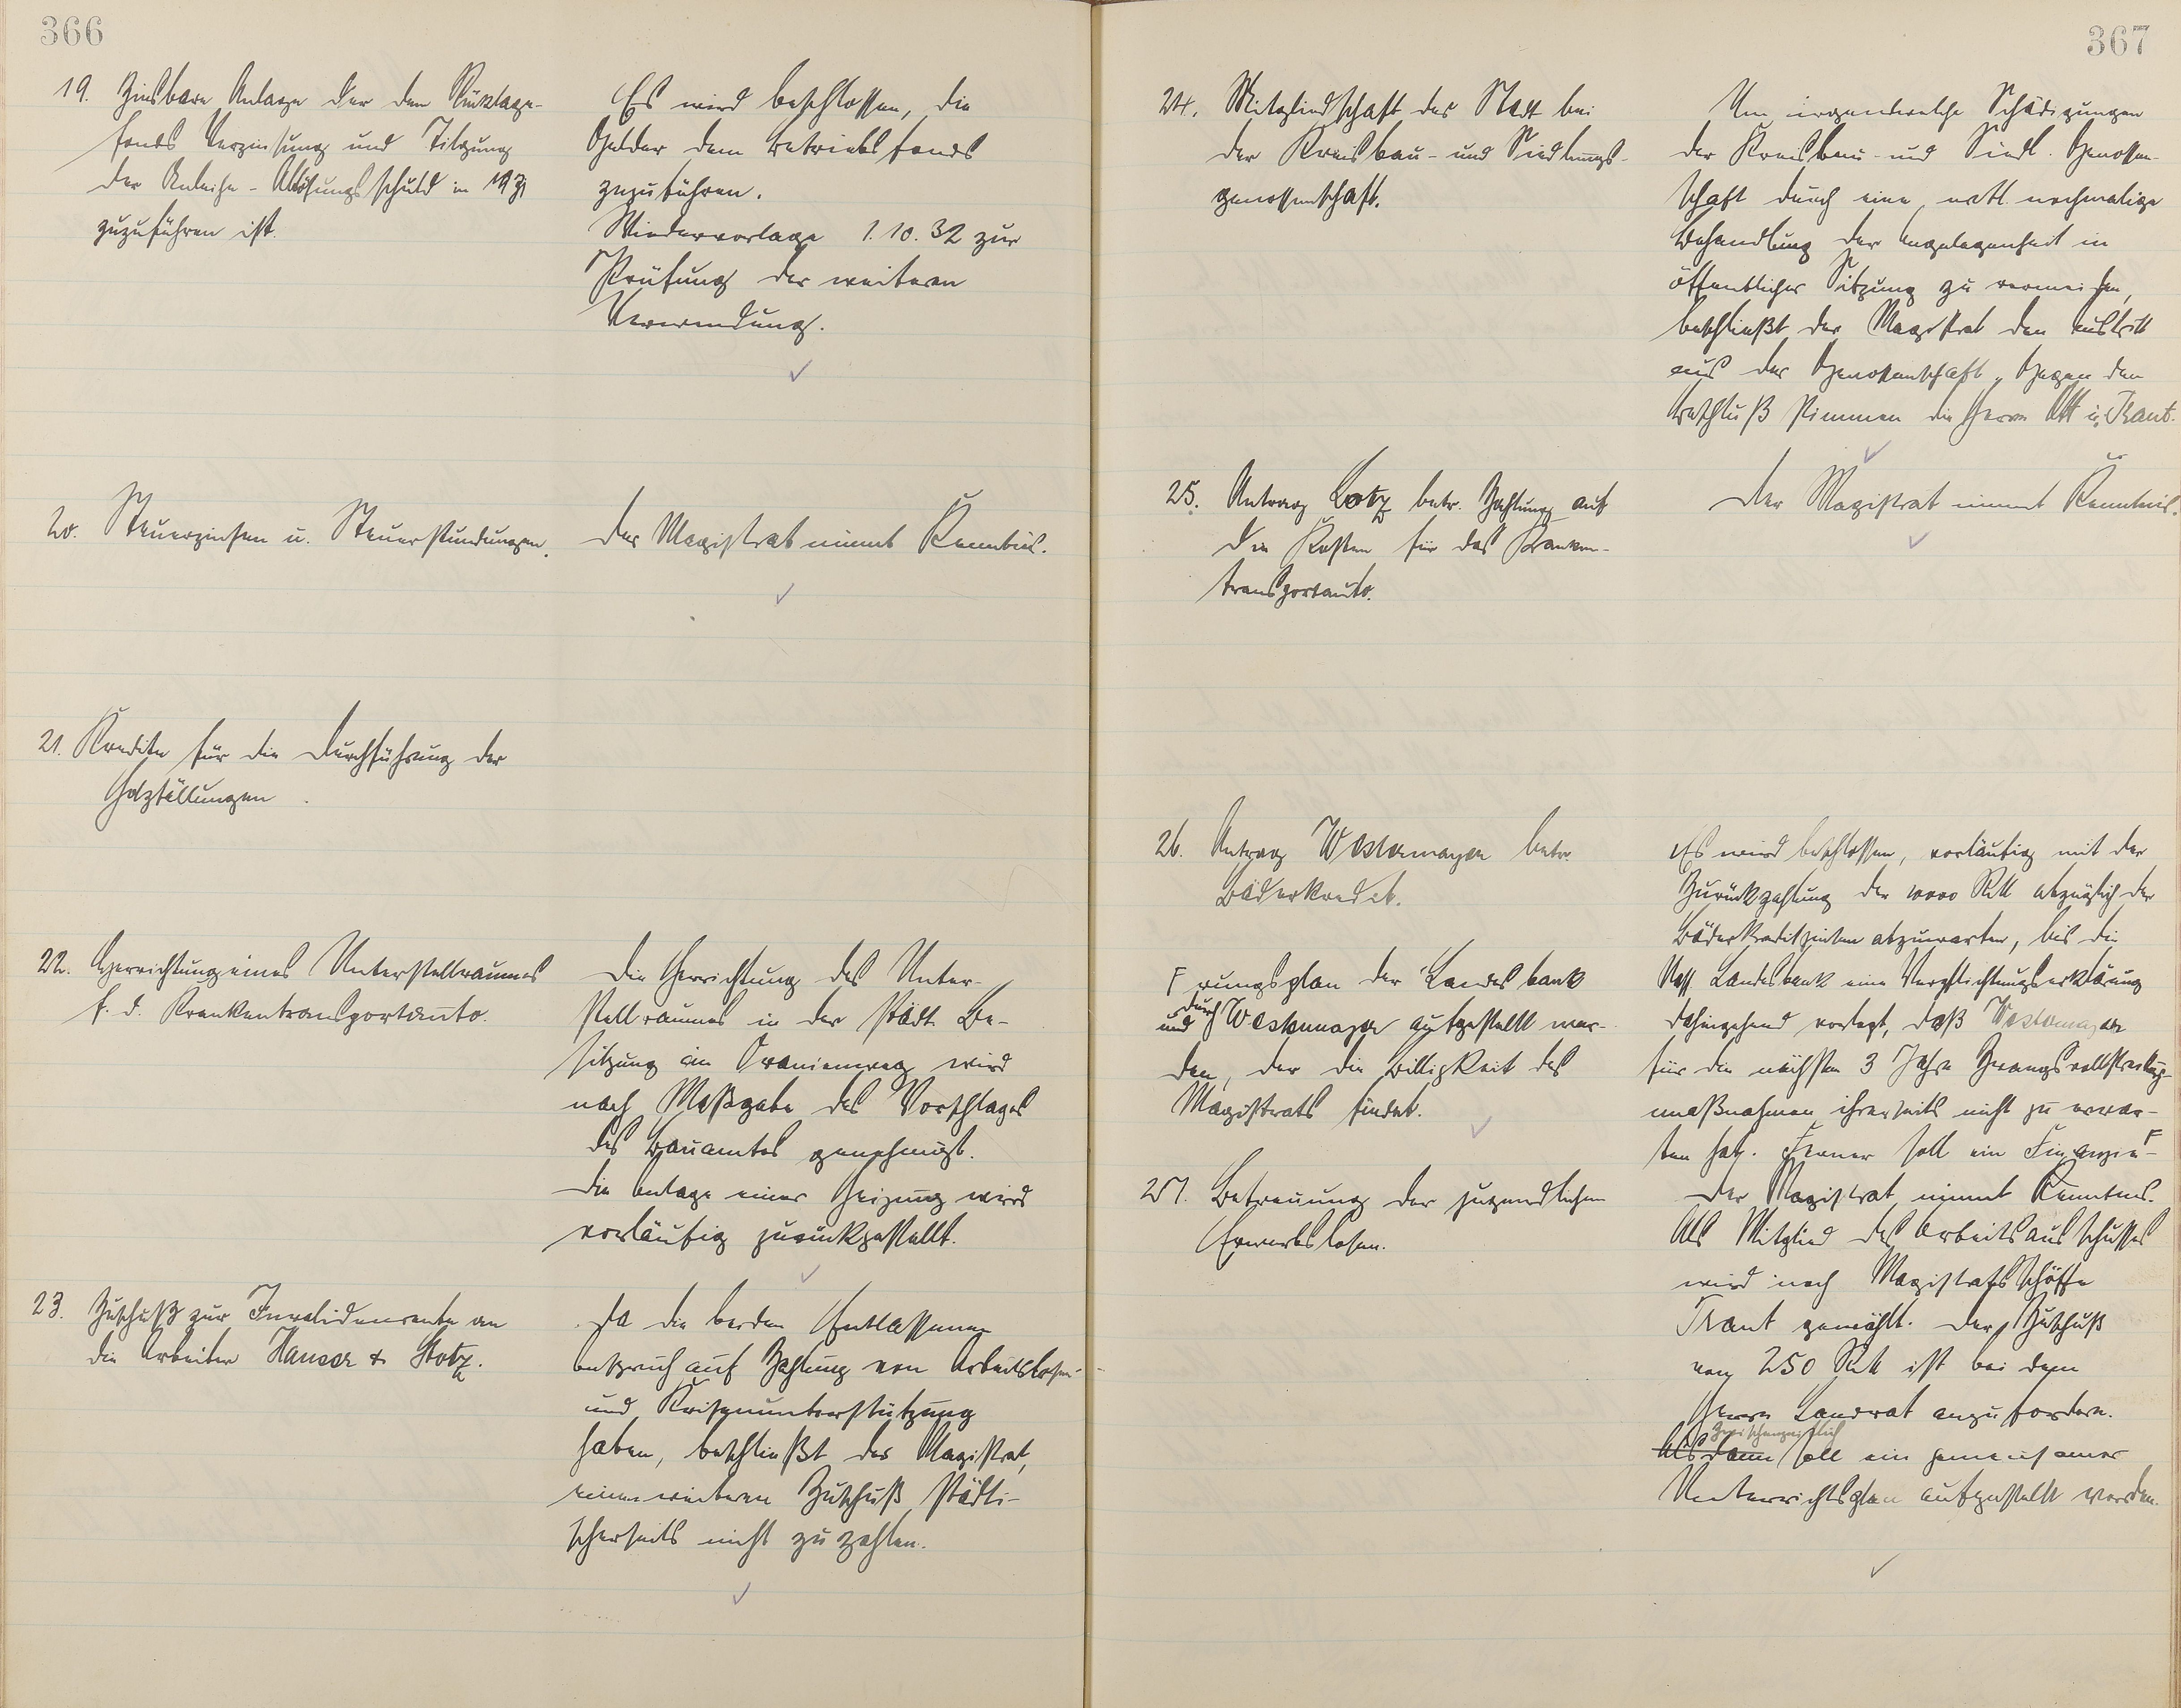 366
19. Zinsbare Anlage der dem Rücklage-
fonds Verzinsung und Tilgung
der Anleihe-Ablösungsschuld in 1931
zuzuführen ist.
Es wird beschlossen, die
Gelder dem Betriebsfonds
zuzuführen.
Wiedervorlage 1.10.32 zur
Prüfung der weiteren
Verwendung.
20. Steuerzinsen u. Steuerstundungen.
Der Magistrat nimmt Kenntnis.
21. Kredite für die Durchführung der
Holzfällungen.
22. Herrichtung eines Unterstellraumes
f. d. Krankentransportauto.
Die Herrichtung des Unter-
stellraumes in der städt. Be-
sitzung im Oranienweg wird
nach Maßgabe des Vorschlages
des Bauamtes genehmigt.
Die Anlage einer Heizung wird
vorläufig zurückgestellt.
23. Zuschuß zur Invalidenrente an
die Arbeiter Hauser & Stotz.
Da die beiden Entlassenen
Anspruch auf Zahlung von Arbeitslosen-
und Krisenunterstützung
haben, beschließt der Magistrat,
einen weiteren Zuschuß städti-
scherseits nicht zu zahlen.
367
24. Mitgliedschaft der Stadt bei
der Kreisbau- und Siedlungs-
genossenschaft.
Um irgendwelche Schädigungen
der Kreisbau- und Siedl. Genossen-
schaft durch eine evtl. nochmalige
Behandlung der Angelegenheit in
öffentlicher Sitzung zu vermeiden,
beschließt der Magistrat den Austritt
aus der Genossenschaft. Gegen den
Beschluß stimmen die Herren Ott u. Traut.
25. Antrag Lotz betr. Zahlung auf
die Kosten für das Kranken-
transportauto.
Der Magistrat nimmt Kenntnis.
26. Antrag Westermayer betr.
Bäderkredit.
Es wird beschlossen, vorläufig mit der
Zurückzahlung der 10000 RM abzüglich der
Bäderkreditzinsen abzuwarten, bis die
Nass. Landesbank eine Verpflichtungserklärung
dahingehend vorlegt, daß Westermayer
für die nächsten 3 Jahre Zwangsvollstreckungs-
maßnahmen ihrerseits nicht zu erwar-
ten hat. Ferner soll ein Finanzie- F
F rungsplan der Landesbank
und durch Westermayer aufgestellt wer-
den, der die Billigkeit des
Magistrats findet.
27. Betreuung der jugendlichen
Erwerbslosen.
Der Magistrat nimmt Kenntnis.
Als Mitglied des Arbeitsausschusses
wird noch Magistratsschöffe
Traut gewählt. Der Zuschuß
von 250 RM ist bei dem
Herrn Landrat anzufordern.
Zwischenzeitlich
Alsdann soll ein gemeinsamer
Unterrichtsplan aufgestellt werden.